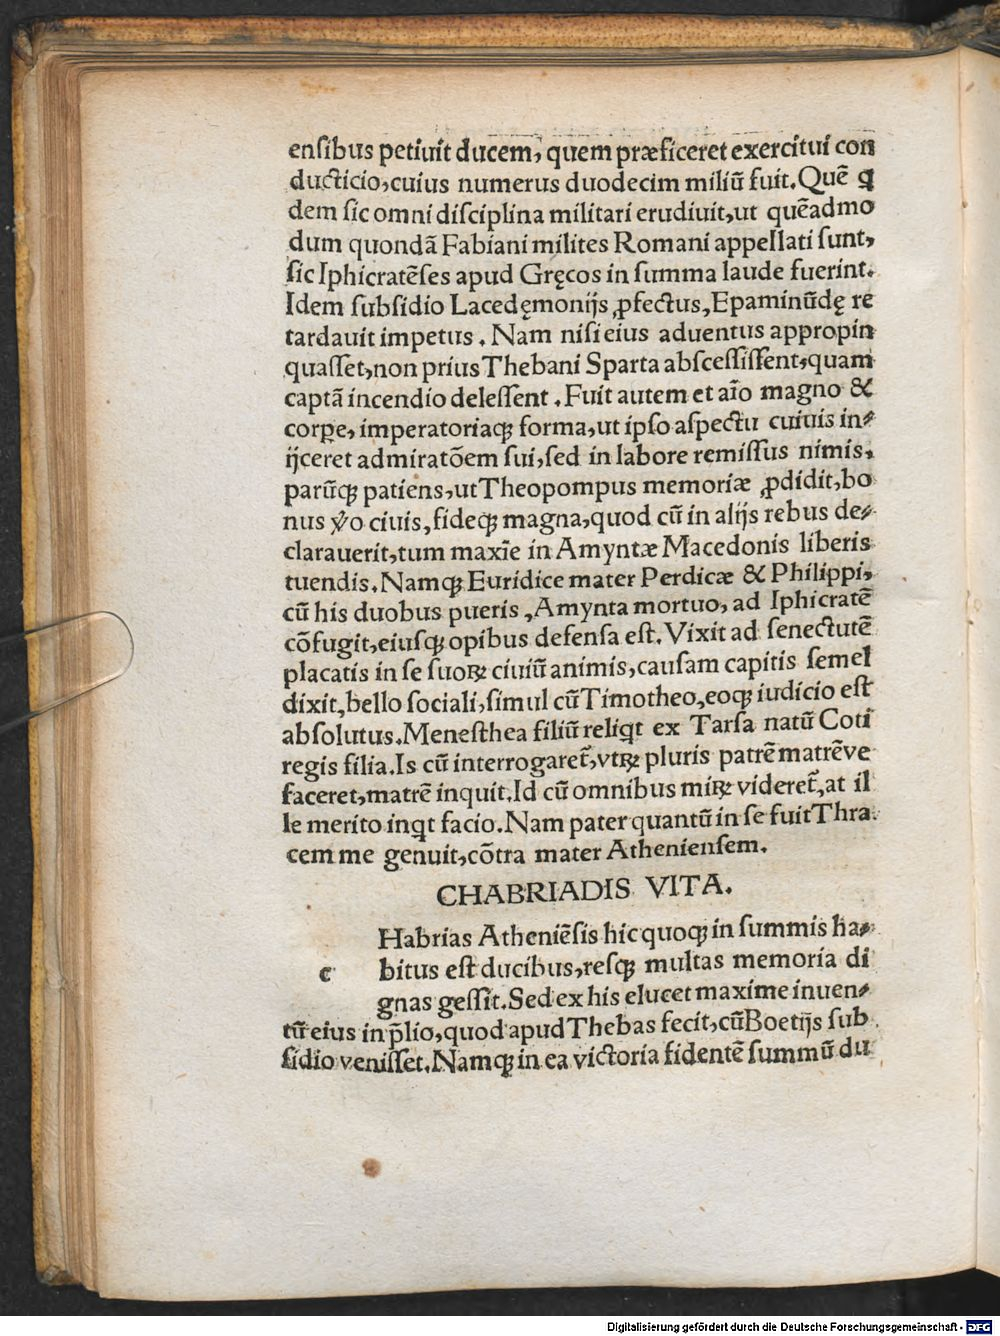 ensibus petiuit ducem, quem præficeret exercitui con
ducticio, cuius numerus duodecim miliū fuit. Quē ꝗ
dem sic omni disciplina militari erudiuit, ut quēadmo
dum quondā Fabiani milites Romani appellati sunt,
sic Iphicratēses apud Gręcos in summa laude fuerint.
Idem subsidio Lacedęmonijs ꝓfectus, Epaminūdę re
tardauit impetus. Nam nisi eius aduentus appropin
quasset, non prius Thebani Sparta abscessissent, quam
captā incendio delessent. Fuit autem et aīo magno &
corpe, imperatoriaqꝫ forma, ut ipso aspectu cuiuis in-
ijceret admiratōem sui, sed in labore remissus nimis,
parūqꝫ patiens, ut Theopompus memoriæ ꝓdidit, bo
nus ꝟo ciuis, fideqꝫ magna, quod cū in alijs rebus de-
clarauerit, tum maxīe in Amyntæ Macedonis liberis
tuendis. Namqꝫ Euridice mater Perdicæ & Philippi,
cū his duobus pueris, Amynta mortuo, ad Iphicratē
cōfugit, eiusqꝫ opibus defensa est. Vixit ad senectutē
placatis in se suoꝝ ciuiū animis, causam capitis semel
dixit, bello sociali, simul cū Timotheo, eoqꝫ iudicio est
absolutus. Menesthea filiū reliꝗt ex Tarsa natū Coti
regis filia. Is cū interrogaret᷑, vtꝝ pluris patrē matrēve
faceret, matrē inquit. Id cū omnibus miꝝ videret᷑, at il
le merito inꝗt facio. Nam pater quantū in se fuit Thra
cem me genuit, cōtra mater Atheniensem.
CHABRIADIS VITA.
c Habrias Atheniēsis hic quoqꝫ in summis ha-
bitus est ducibus, resqꝫ multas memoria di
gnas gessit. Sed ex his elucet maxime inuen-
tū eius in p̄lio, quod apud Thebas fecit, cū Boetijs sub
sidio venisset. Namqꝫ in ea victoria fidentē summū du
Digitalisierung gefördert durch die Deutsche Forschungsgemeinschaft - DFG